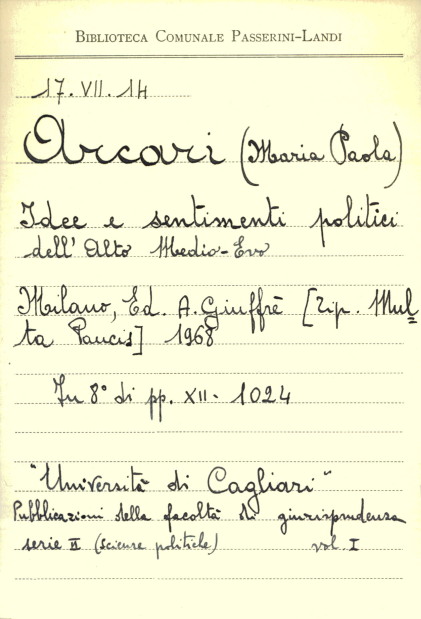 BIBLIOTECA COMUNALE PASSERINI-LANDI
17.VII.14
Arcari (Maria Paola)
Idee e sentimenti politici
dell' Alto Medio-Evo
Milano, Ed. A. Giuffrè [Tip. Mul=
ta Paucis] 1968
In 8° di pp. XII- 1024
"Università di Cagliari"
Pubblicazioni della facoltà di giurisprudenza
serie II (scienze politiche) vol. I